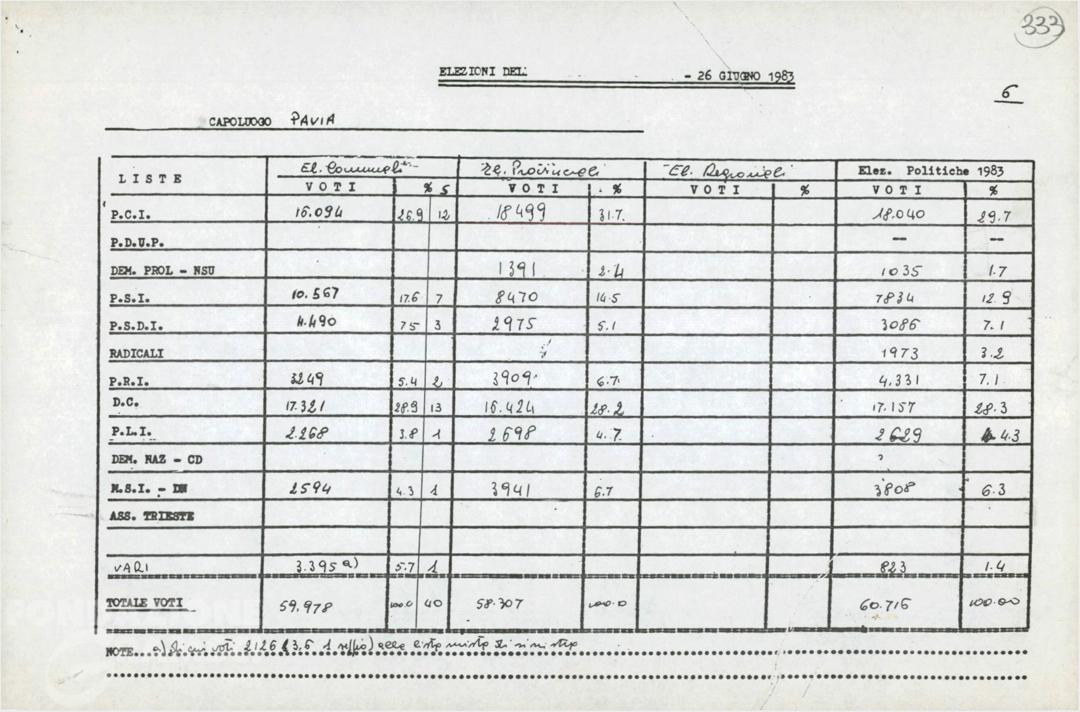 333
ELEZIONI DEL - 26 GIUGNO 1983
6
CAPOLUOGO PAVIA
LISTE El. Comunali El. Provinciali El. Regionali Elez. Politiche 1983
VOTI % S VOTI % VOTI % VOTI %
P.C.I. 16.094 26.9 12 18499 31.7. 18.040 29.7
P.D.U.P. — —
DEM. PROL - NSU 1391 2.4 1035 1.7
P.S.I. 10.567 17.6 7 8470 14.5 7834 12.9
P.S.D.I. 4.490 75 3 2975 5.1 3086 7.1
RADICALI 1973 3.2
P.R.I. 3249 5.4 2 3909 6.7. 4.331 7.1.
D.C. 17.321 28.9 13 16.424 28.2 17.157 28.3
P.L.I. 2.268 3.8 1 2698 4.7. 2629 4.3
DEM. NAZ - CD ?
M.S.I. - DN 2594 4.3 1 3941 6.7 3808 6.3
ASS. TRIESTE
VARI 3.395 a) 5.7 1 823 1.4
TOTALE VOTI 59.978 100.0 40 58.307 100.0 60.716 100.00
NOTE... a) di cui voti 2126 (3.6 1 seggio) alla lista mista di sinistra
FONDAZIONE